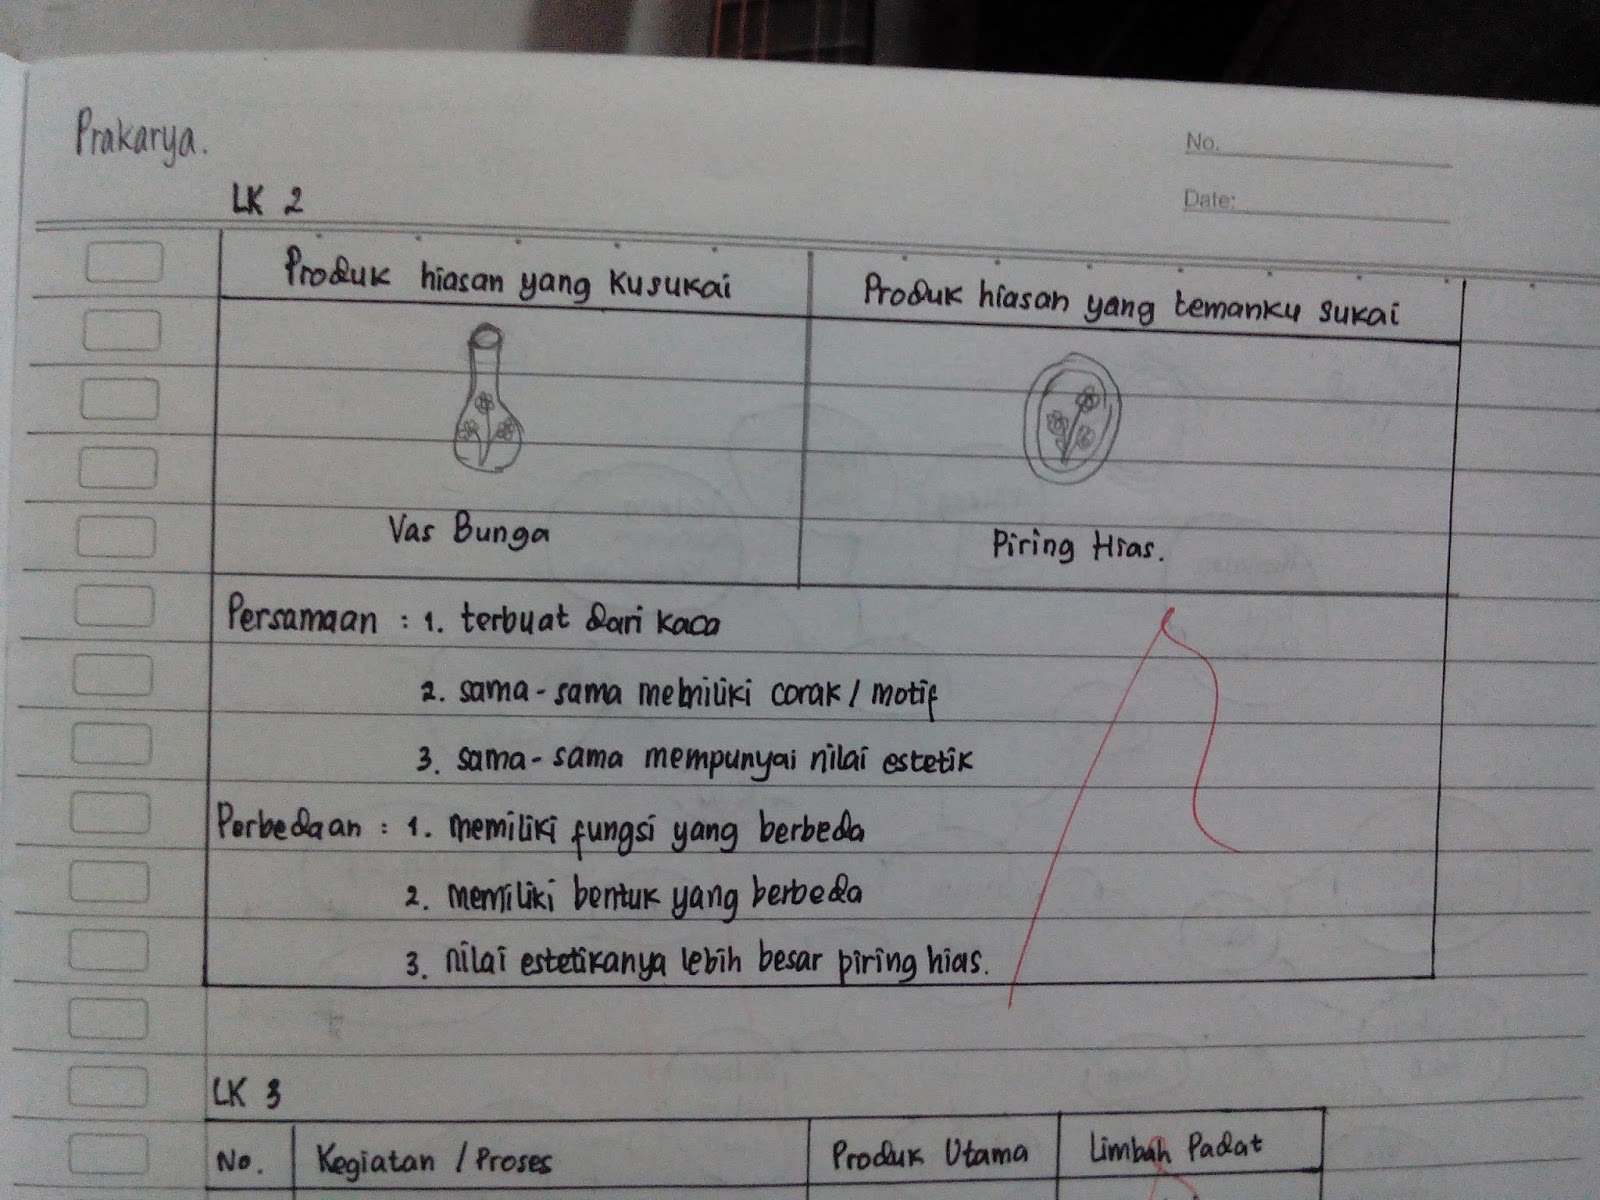 Prakarya.
No.
Date:
LK 2
Produk hiasan yang kusukai
Produk hiasan yang temanku sukai
Vas Bunga
Piring Hias.
Persamaan : 1. terbuat dari kaca
2. sama-sama memiliki corak / motif
3. sama-sama mempunyai nilai estetik
Perbedaan : 1. memiliki fungsi yang berbeda
2. memiliki bentuk yang berbeda
3. nilai estetikanya lebih besar piring hias.
LK 3
No.
Kegiatan / Proses
Produk Utama
Limbah Padat